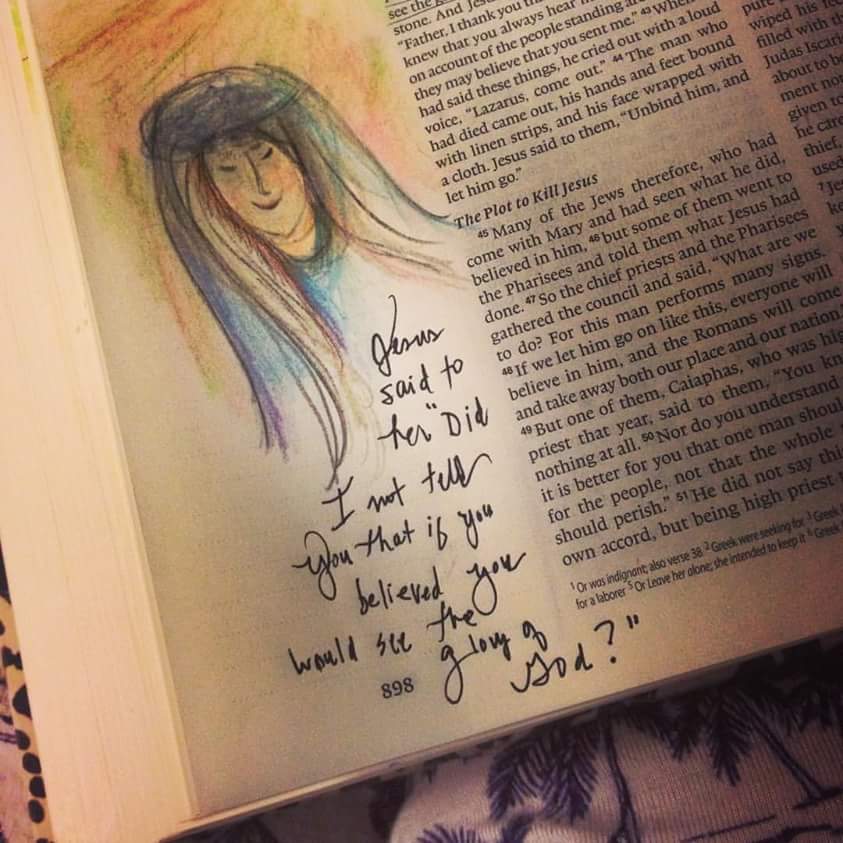 see the
stone. And Jesus
"Father, I thank you th
knew that you always hear m
on account of the people standing
they may believe that you sent me." 43 When
had said these things, he cried out with a loud
voice, "Lazarus, come out." 44 The man who
had died came out, his hands and feet bound
with linen strips, and his face wrapped with
a cloth. Jesus said to them, "Unbind him, and
let him go."
The Plot to Kill Jesus
45 Many of the Jews therefore, who had
come with Mary and had seen what he did,
believed in him, 46 but some of them went to
the Pharisees and told them what Jesus had
done. 47 So the chief priests and the Pharisees
gathered the council and said, "What are we
to do? For this man performs many signs.
48 If we let him go on like this, everyone will
believe in him, and the Romans will come
and take away both our place and our nation.
49 But one of them, Caiaphas, who was hig
priest that year, said to them, "You kn
nothing at all. 50 Nor do you understand
it is better for you that one man shoul
for the people, not that the whole
should perish." 51 He did not say thi
own accord, but being high priest
1 Or was indignant; also verse 38 2 Greek were seeking for 3 Greek
for a laborer 5 Or Leave her alone; she intended to keep it 6 Greek
pure
wiped his fe
filled with th
Judas Iscari
about to be
ment not
given to
he care
thief,
used
7 Jes
ke
Jesus
said to
her "Did
I not tell
you that if you
believed you
would see the
glory of
God?"
898